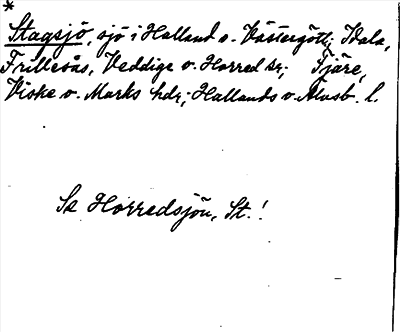 *
Stagsjö, sjö i Halland o. Västergötl.; Idala,
Frillesås, Veddige o. Horred sr; Fjäre,
Viske o. Marks hdr; Hallands o. Älvsb. l.
Se Horredsjön, St.!